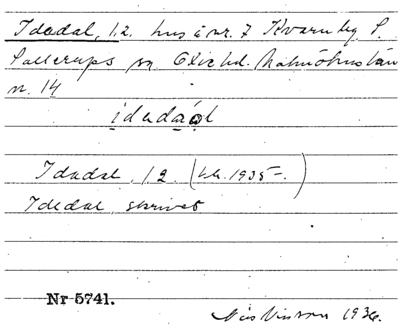 Idadal, 1,2. hus å nr. 7 Kvarnby S.
Sallerups sn Oxie hd. Malmöhus län
n. 14
idadaol
Idadal 1,2 (kb. 1935-.)
Idedal skrivet
Nr 5741.
Nils Nilsson 1936.